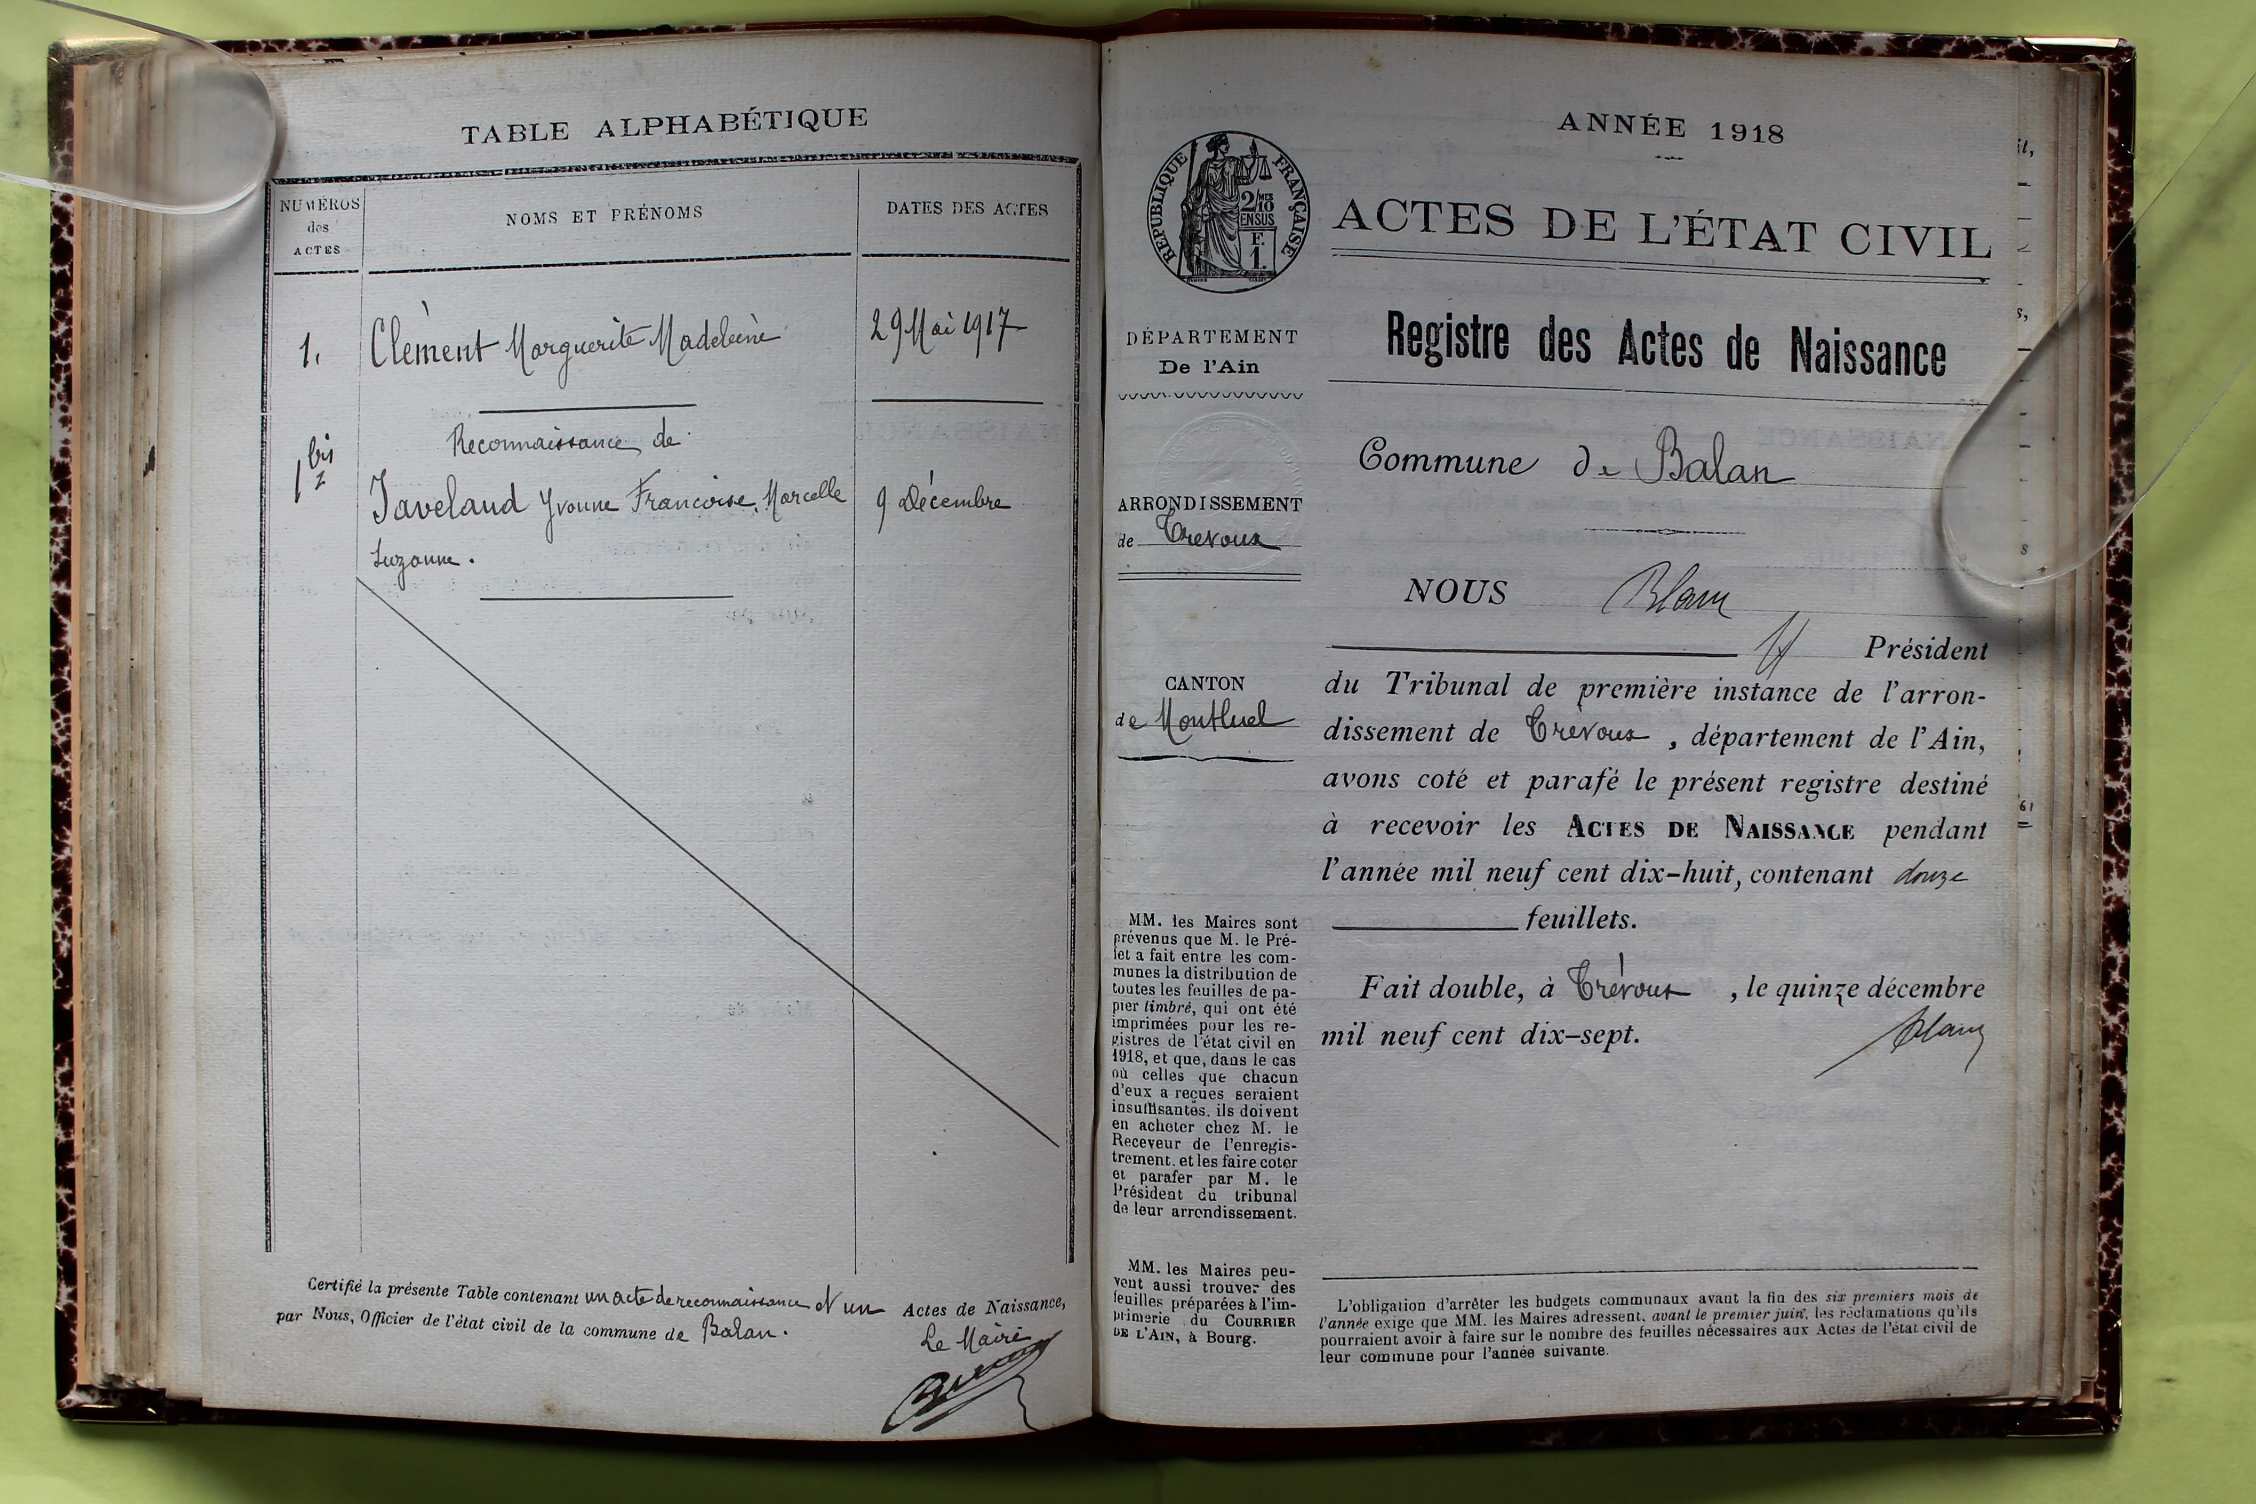 TABLE ALPHABÉTIQUE
NUMÉROS
des
ACTES
NOMS ET PRÉNOMS
DATES DES ACTES
1.
Clément Marguerite Madeleine
29 Mai 1917
1 bis
Reconnaissance de
Javeland Yvonne Francoise, Marcelle
9 Décembre
Suzanne.
Certifié la présente Table contenant un acte de reconnaissance et un Actes de Naissance,
par Nous, Officier de l'état civil de la commune de Balan.
Le Maire
ANNÉE 1918
RÉPUBLIQUE FRANÇAISE
2/10 MES
EN SUS
F.
1.
ACTES DE L'ÉTAT CIVIL
DÉPARTEMENT
De l'Ain
ARRONDISSEMENT
de Trévoux
CANTON
de Montluel
MM. les Maires sont
prévenus que M. le Pré-
fet a fait entre les com-
munes la distribution de
toutes les feuilles de pa-
pier timbré, qui ont été
imprimées pour les re-
gistres de l'état civil en
1918, et que, dans le cas
où celles que chacun
d'eux a reçues seraient
insuffisantes, ils doivent
en acheter chez M. le
Receveur de l'enregis-
trement, et les faire coter
et parafer par M. le
Président du tribunal
de leur arrondissement.
MM. les Maires peu-
vent aussi trouver des
feuilles préparées à l'im-
primerie du COURRIER
DE L'AIN, à Bourg.
Registre des Actes de Naissance
Commune de Balan
NOUS
Président
du Tribunal de première instance de l'arron-
dissement de Trévoux, département de l'Ain,
avons coté et parafé le présent registre destiné
à recevoir les ACTES DE NAISSANCE pendant
l'année mil neuf cent dix-huit, contenant douze
feuillets.
Fait double, à Trévoux, le quinze décembre
mil neuf cent dix-sept.
L'obligation d'arrêter les budgets communaux avant la fin des six premiers mois de
l'année exige que MM. les Maires adressent, avant le premier juin, les réclamations qu'ils
pourraient avoir à faire sur le nombre des feuilles nécessaires aux Actes de l'état civil de
leur commune pour l'année suivante.